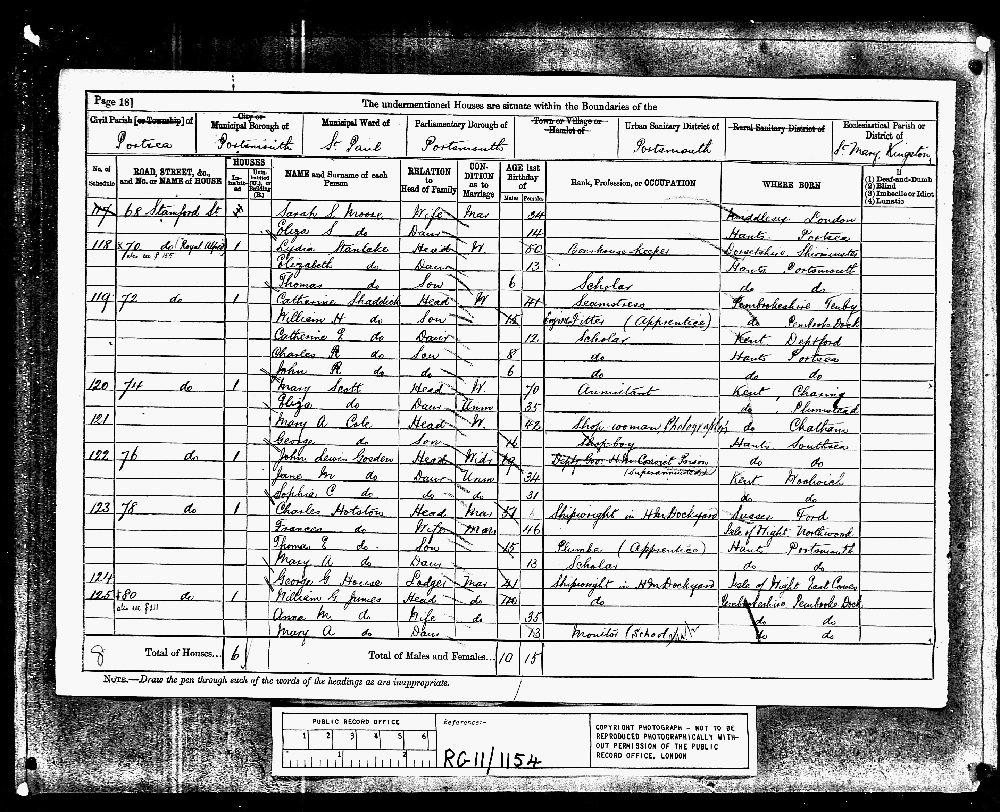 Page 18]
The undermentioned Houses are situate within the Boundaries of the
Civil Parish [or Township] of
City or Municipal Borough of
Municipal Ward of
Parliamentary Borough of
Town or Village or Hamlet of
Urban Sanitary District of
Rural Sanitary District of
Ecclesiastical Parish or District of
Portsea Portsmouth St Paul Portsmouth Portsmouth St Mary, Kingston
No. of Schedule
ROAD, STREET, &c., and No. or NAME of HOUSE
HOUSES
Inhabited
NAME and Surname of each Person
RELATION to Head of Family
CONDITION as to Marriage
AGE last Birthday of
Males Females
Rank, Profession, or OCCUPATION
WHERE BORN
If
(1) Deaf-and-Dumb
(2) Blind
(3) Imbecile or Idiot
(4) Lunatic
117 68 Stamford St Sarah S Moose Wife Mar 34 Middlesex London
Eliza S do Daur 14 Hants Portsea
118 70 do (Royal Albert) 1 Lydia Stanlake Head W 50 Beerhouse Keeper Dorsetshire
Elizabeth do Daur 13 Hants Portsmouth
Thomas do Son 6 Scholar do do
119 72 do 1 Catherine Shaddick Head W 41 Seamstress Pembrokeshire Tenby
William H do Son 15 Fitter (Apprentice) do Pembroke Dock
Catherine E do Daur 12 Scholar Kent Deptford
Charles R do Son 8 do Hants Portsea
John R do do 6 do do do
120 74 do 1 Mary Scott Head W 70 Annuitant Kent, Charing
Eliza do Daur Unm 35 do, Plumstead
121 Mary A Cole Head W 42 Shop woman Photographer's do Chatham
George do Son 16 Shop boy Hants Southsea
122 76 do 1 John Lewis Gooden Head Widr 79 Depty Govr H.M. Convict Prison (Superannuated) do do
Jane M do Daur Unm 34 Kent Woolwich
Sophia C do do do 31 do do
123 78 do 1 Charles Hotston Head Mar Shipwright in H.M. Dockyard Sussex Ford
Frances do Wife Mar 46 Isle of Wight Northwood
Thomas E do Son 15 Plumber (Apprentice) Hants Portsmouth
Mary A do Daur 13 Scholar do do
124 George G House Lodger Mar 41 Shipwright in H.M. Dockyard Isle of Wight East Cowes
125 80 do 1 William G James Head do do Pembrokeshire Pembroke Dock
Anna M do Wife do 35 do do
Mary A do Daur 13 Monitor (School) do do
8 Total of Houses... 6 Total of Males and Females... 10 15
NOTE.—Draw the pen through such of the words of the headings as are inappropriate.
PUBLIC RECORD OFFICE
1 2 3 4 5 6
1 2
Reference:-
RG11/1154
COPYRIGHT PHOTOGRAPH - NOT TO BE
REPRODUCED PHOTOGRAPHICALLY WITH-
OUT PERMISSION OF THE PUBLIC
RECORD OFFICE, LONDON